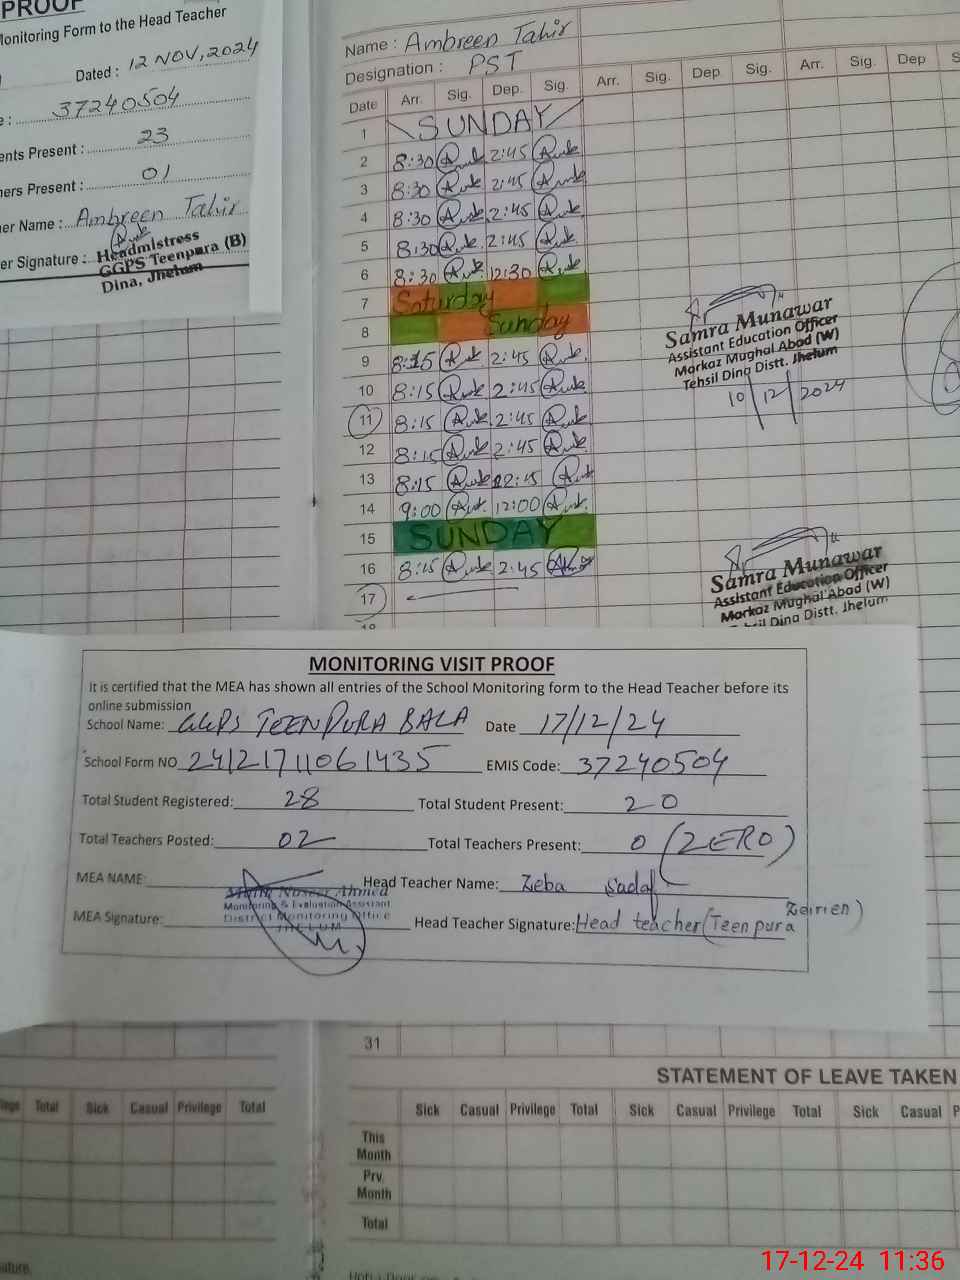 PROOF
Monitoring Form to the Head Teacher
Dated : 12 NOV, 2024
e : 37240504
ents Present : 23
hers Present : 01
er Name : Ambreen Tahir
er Signature :
Headmistress
GGPS Teenpura (B)
Dina, Jhelum
Name : Ambreen Tahir
Designation : PST
Date Arr. Sig. Dep. Sig. Arr. Sig. Dep Sig. Arr. Sig. Dep S
1 SUNDAY
2 8:30 2:45
3 8:30 2:45
4 8:30 2:45
5 8:30 2:45
6 8:30 12:30
7 Saturday
8 Sunday
9 8:15 2:45
10 8:15 2:45
11 8:15 2:45
12 8:15 2:45
13 8:15
14 9:00 12:00
15 SUNDAY
16 8:15 2:45
17
18
Samra Munawar
Assistant Education Officer
Markaz Mughal Abad (W)
Tehsil Dina Distt. Jhelum
10/12/2024
Samra Munawar
Assistant Education Officer
Markaz Mughal Abad (W)
Tehsil Dina Distt. Jhelum
MONITORING VISIT PROOF
It is certified that the MEA has shown all entries of the School Monitoring form to the Head Teacher before its
online submission
School Name: GGPS TEENPURA BALA Date 17/12/24
School Form NO 24121711061435 EMIS Code: 37240504
Total Student Registered: 28 Total Student Present: 20
Total Teachers Posted: 02 Total Teachers Present: 0 (ZERO)
MEA NAME: Head Teacher Name: Zeba Sadaf
Naseer Ahmed
Monitoring & Evaluation Assistant
District Monitoring Office
JHELUM
MEA Signature: Head Teacher Signature: Head teacher (Teenpura Zeirien)
31
STATEMENT OF LEAVE TAKEN
Total Sick Casual Privilege Total
Sick Casual Privilege Total Sick Casual Privilege Total Sick Casual P
This
Month
Prv.
Month
Total
17-12-24 11:36